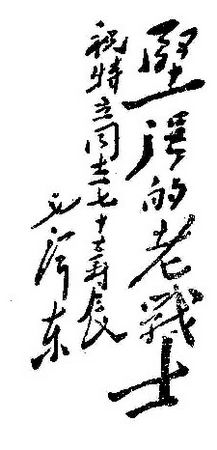 堅强的老戰士
祝特立同志七十寿辰
毛泽东